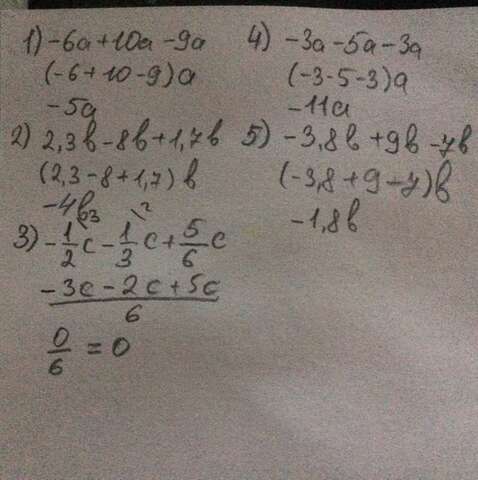 1) -6a + 10a - 9a
(-6 + 10 - 9)a
-5a
2) 2,3b - 8b + 1,7b
(2,3 - 8 + 1,7) b
-4b
3) -1/2 c - 1/3 c + 5/6 c
3 2
-3c - 2c + 5c
6
0/6 = 0
4) -3a - 5a - 3a
(-3 - 5 - 3)a
-11a
5) -3,8b + 9b - 7b
(-3,8 + 9 - 7)b
-1,8b